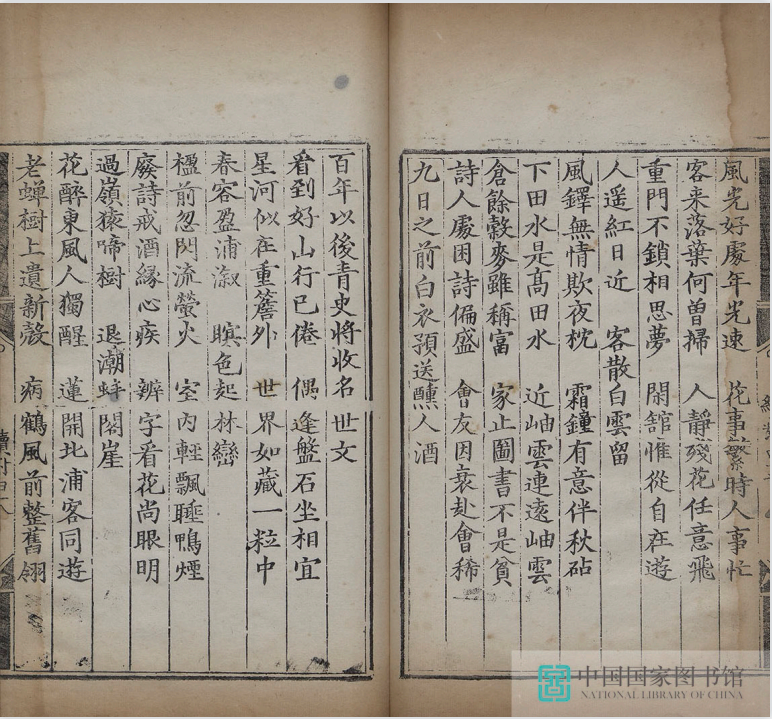 風光好處年光速　花事繁時人事忙
客来落葉何曽掃　人靜殘花任意飛
重門不鎖相思夢　閑舘惟從自在遊
人遥紅日近　客散白雲留
風鐸無情欺夜枕　霜鐘有意伴秋砧
下田水是髙田水　近岫雲連遠岫雲
倉餘穀麥雖稱富　家止圖書不是貧
詩人處困詩偏盛　會友因衰赴會稀
九日之前白衣預送醺人酒
百年以後青史將收名世文
看到好山行已倦　偶逢盤石坐相宜
星河似在重簷外　世界如藏一粒中
春容盈浦溆　暝色起林巒
楹前忽閃流螢火　室内輕飄睡鴨煙
廢詩戒酒緣心疾　辨字看花尚眼明
過嶺猿啼樹　退潮蚌閣崖
花醉東風人獨醒　蓮開北浦客同遊
老蟬樹上遺新殼　病鶴風前整舊翎
中国国家图书馆
NATIONAL LIBRARY OF CHINA